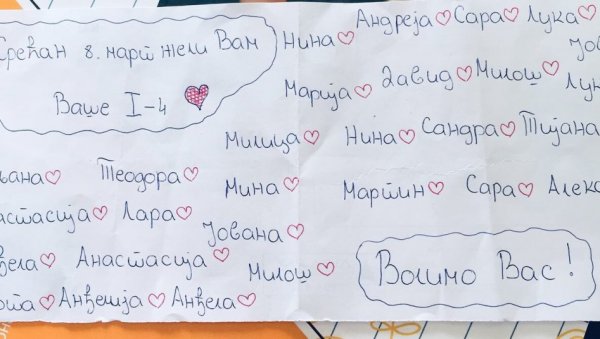 Срећан 8. март жели Вам
Ваше I-4
Андреја Сара Лука
Нина
Марија Давид Милош
Милица Нина Сандра Тијана
Теодора Мина Мартин Сара
Лара
Јована
Анастасија Милош
Анђелија Анђела
Волимо Вас!